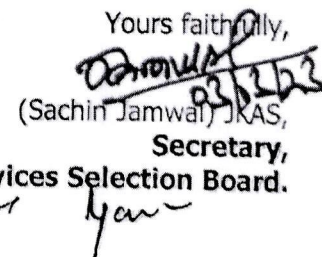 Yours faithfully,
03/3/23
(Sachin Jamwal) JKAS,
Secretary,
vices Selection Board.